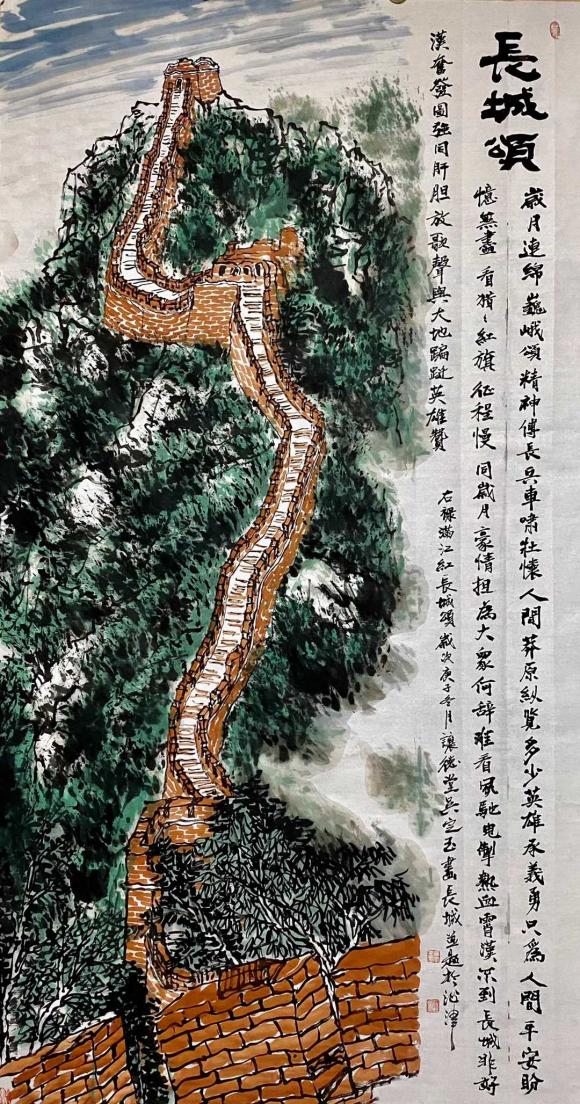 長城頌
歲月連綿巍峨頌精神傳長兵車嘯壯懷人間莽原縱覽多少英雄承義勇只為人間平安盼
憶無盡看獵獵紅旗征程慢同歲月豪情担為大衆何辞難看風馳电掣熱血霄漢不到長城非好
漢奮發圖強同肝胆放歌聲與大地蹁跹英雄贊
右錄滿江紅長城頌歲次庚子冬月讓德堂吳定玉畫長城並題於